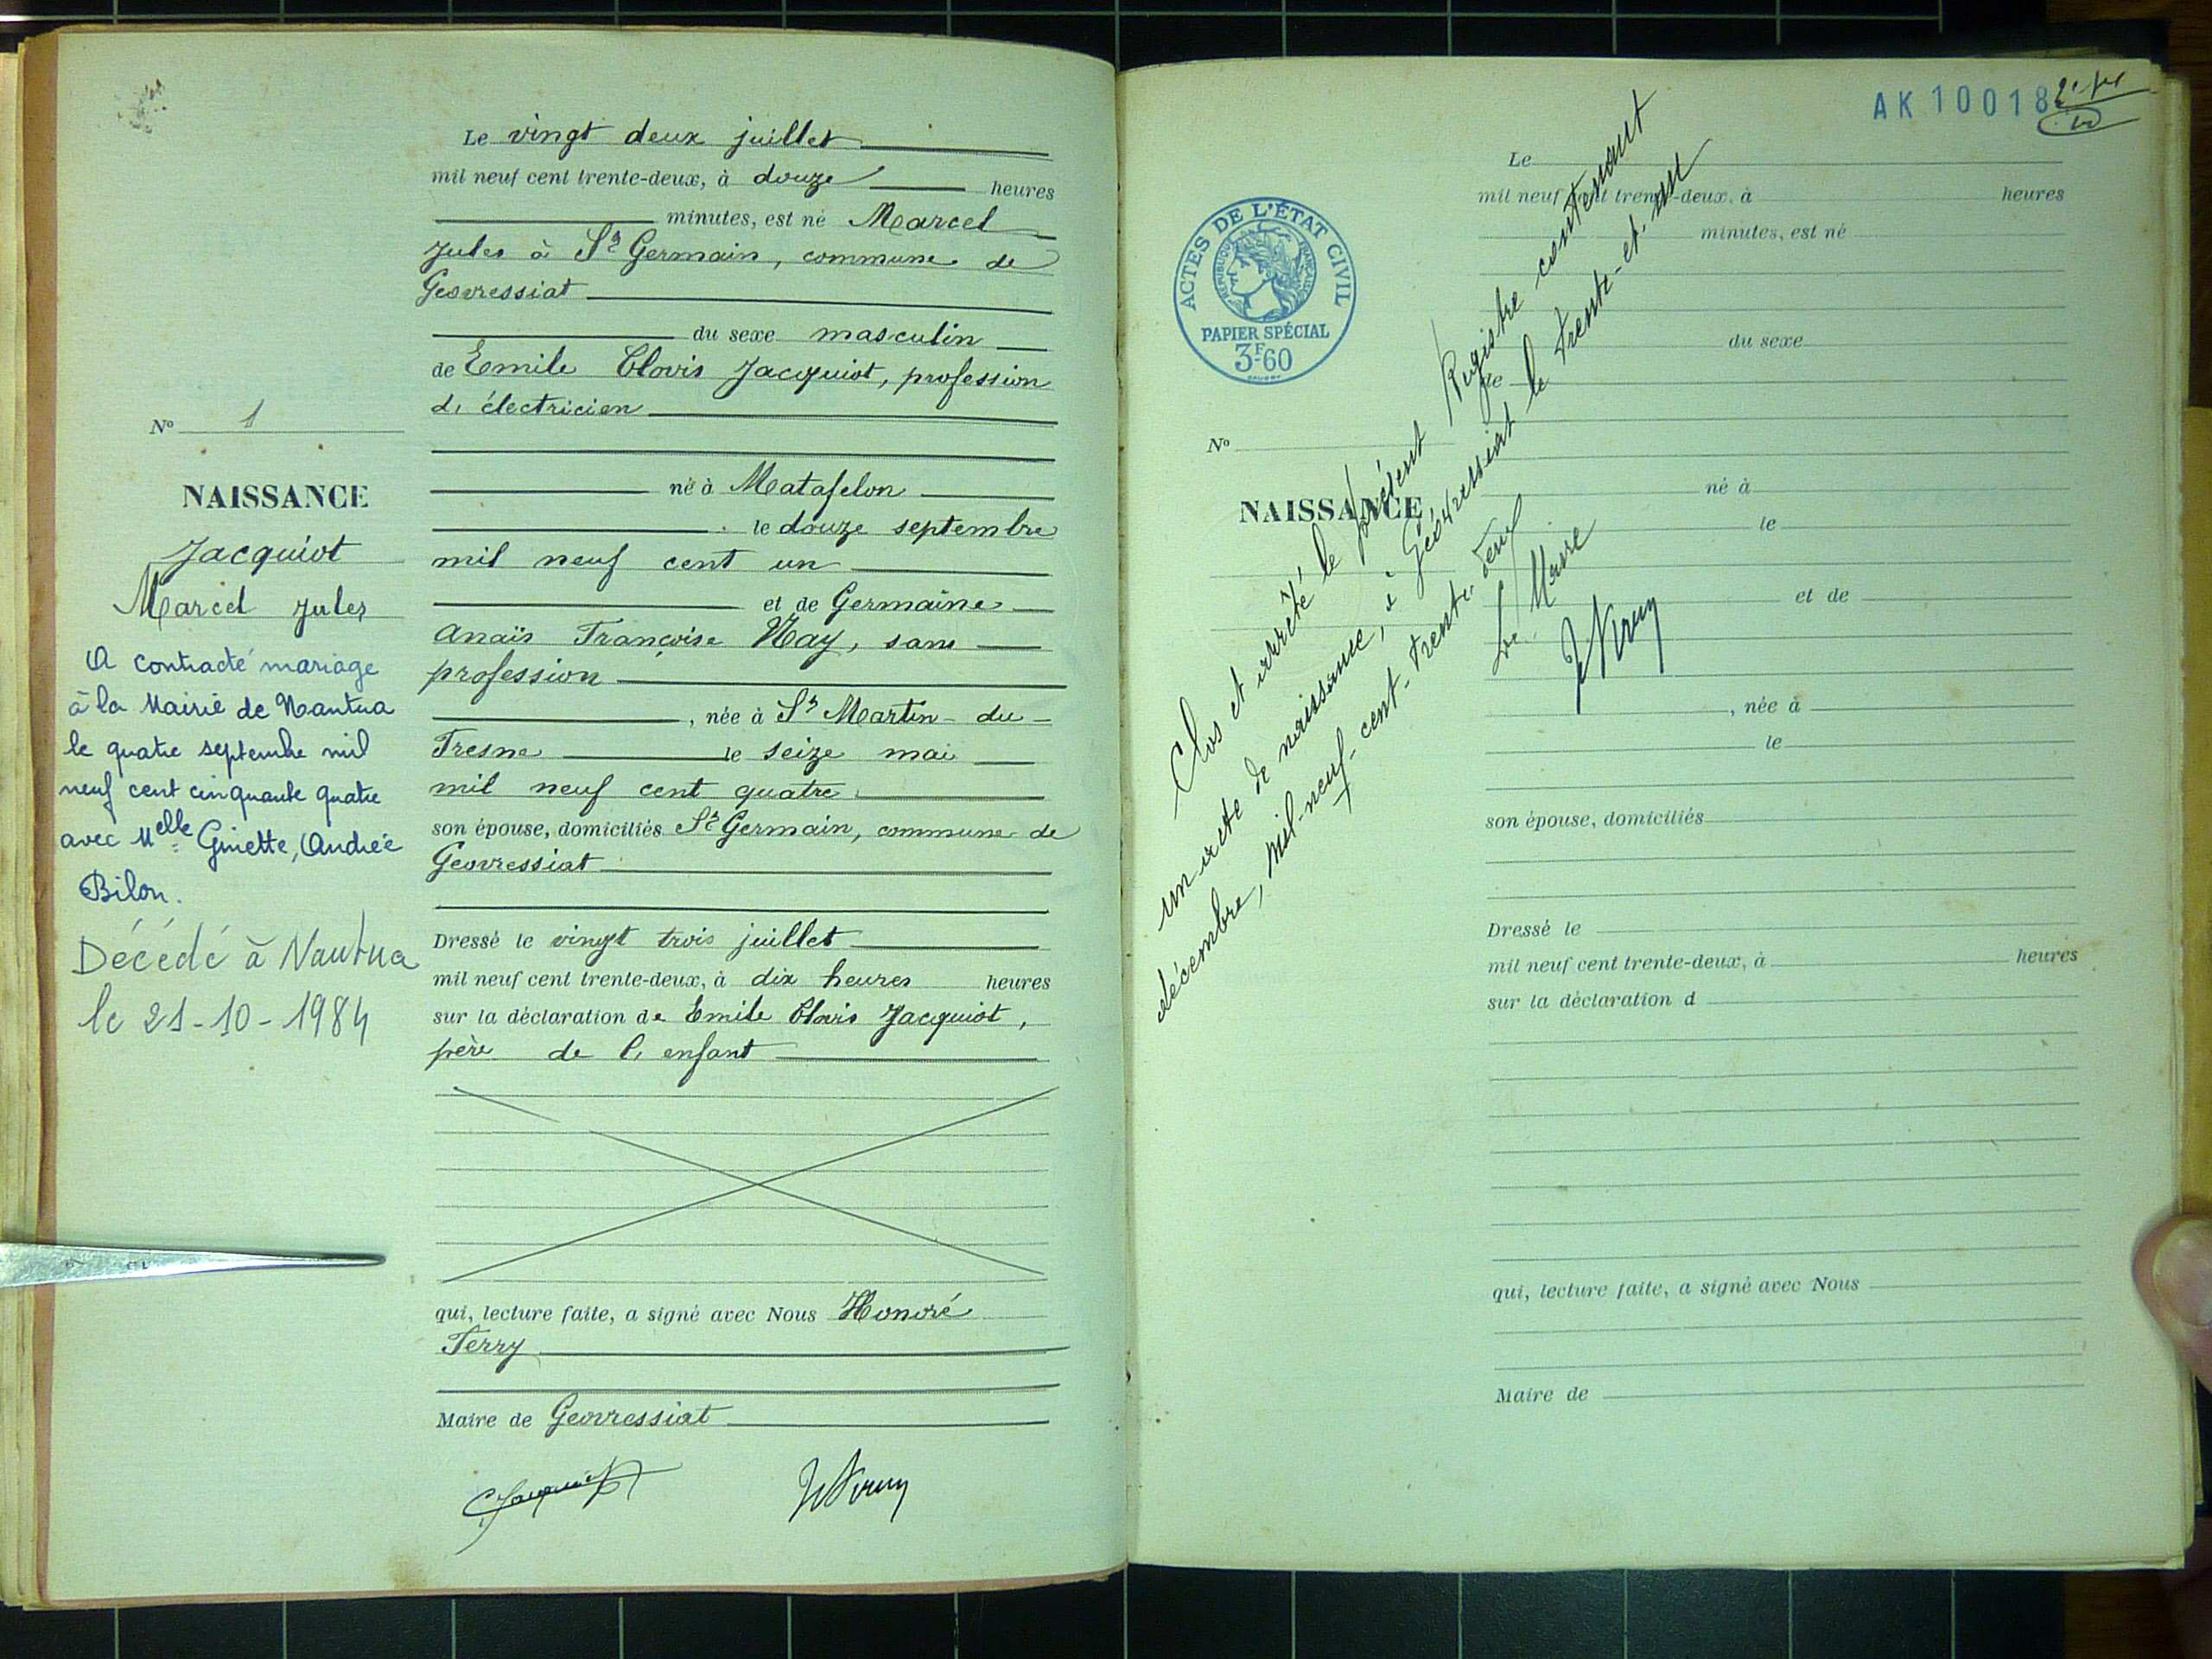 Le vingt deux juillet
mil neuf cent trente-deux, à douze heures
minutes, est né Marcel
Jules à St Germain, commune de
Geovressiat
du sexe masculin
de Emile Clovis Jacquiot, profession
d'électricien
né à Matafelon
le douze septembre
mil neuf cent un
et de Germaine
Anaïs Françoise Nay, sans
profession
, née à St Martin-du-
Fresne le seize mai
mil neuf cent quatre
son épouse, domiciliés St Germain, commune de
Geovressiat
Dressé le vingt trois juillet
mil neuf cent trente-deux, à dix heures heures
sur la déclaration de Emile Clovis Jacquiot,
père de l'enfant
qui, lecture faite, a signé avec Nous Honoré
Ferry
Maire de Geovressiat
No 1
NAISSANCE
Jacquiot
Marcel Jules
A contracté mariage
à la Mairie de Nantua
le quatre septembre mil
neuf cent cinquante quatre
avec Melle Ginette, Andrée
Bilon.
Décédé à Nantua
le 21-10-1984
AK 10018
ACTES DE L'ÉTAT CIVIL
RÉPUBLIQUE FRANÇAISE
PAPIER SPÉCIAL
3F60
No
NAISSANCE
Le
mil neuf cent trente-deux, à heures
minutes, est né
du sexe
de
né à
le
et de
, née à
le
son épouse, domiciliés
Dressé le
mil neuf cent trente-deux, à heures
sur la déclaration d
qui, lecture faite, a signé avec Nous
Maire de
Clos et arrêté le présent Registre contenant
un acte de naissance, à Géovressiat le trente-et-un
décembre, mil-neuf-cent-trente-deux
Le Maire